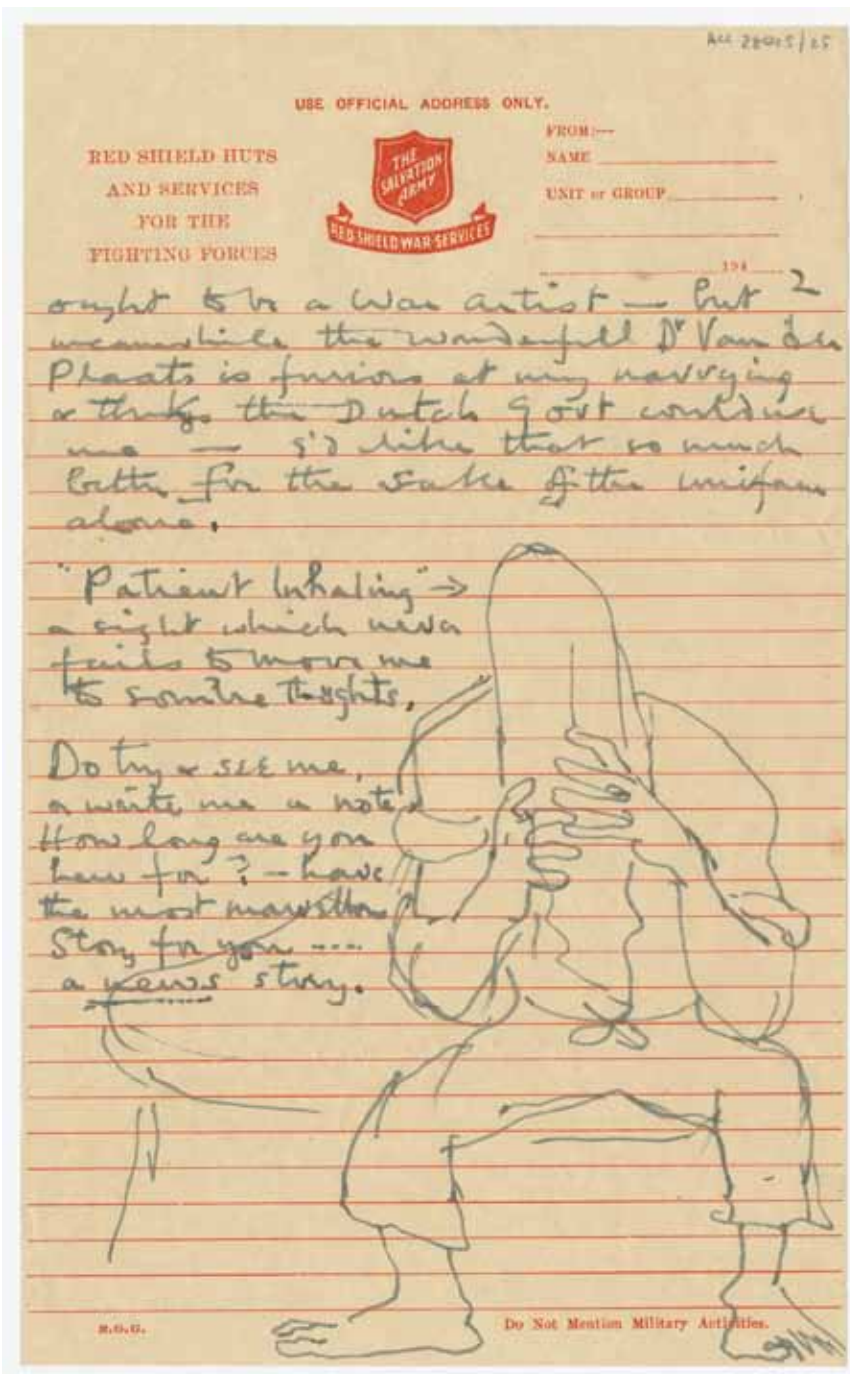 ACC 28005/25
USE OFFICIAL ADDRESS ONLY.
RED SHIELD HUTS
AND SERVICES
FOR THE
FIGHTING FORCES
THE
SALVATION
ARMY
RED SHIELD WAR SERVICES
FROM:—
NAME
UNIT or GROUP
194
2
ought to be a War artist — but
meanwhile the wonderfull Dr Van der
Plaats is furious at my
& thinks the Dutch Govt could use
me — I'd like that so much
better for the sake of the uniform
alone.
"Patient Inhaling" →
a sight which never
fails to move me
to sombre thoughts.
Do try & see me,
or write me a note.
How long are you
here for? – have
the most marvellous
Story for you ----
a news story.
R.O.G.
Do Not Mention Military Activities.